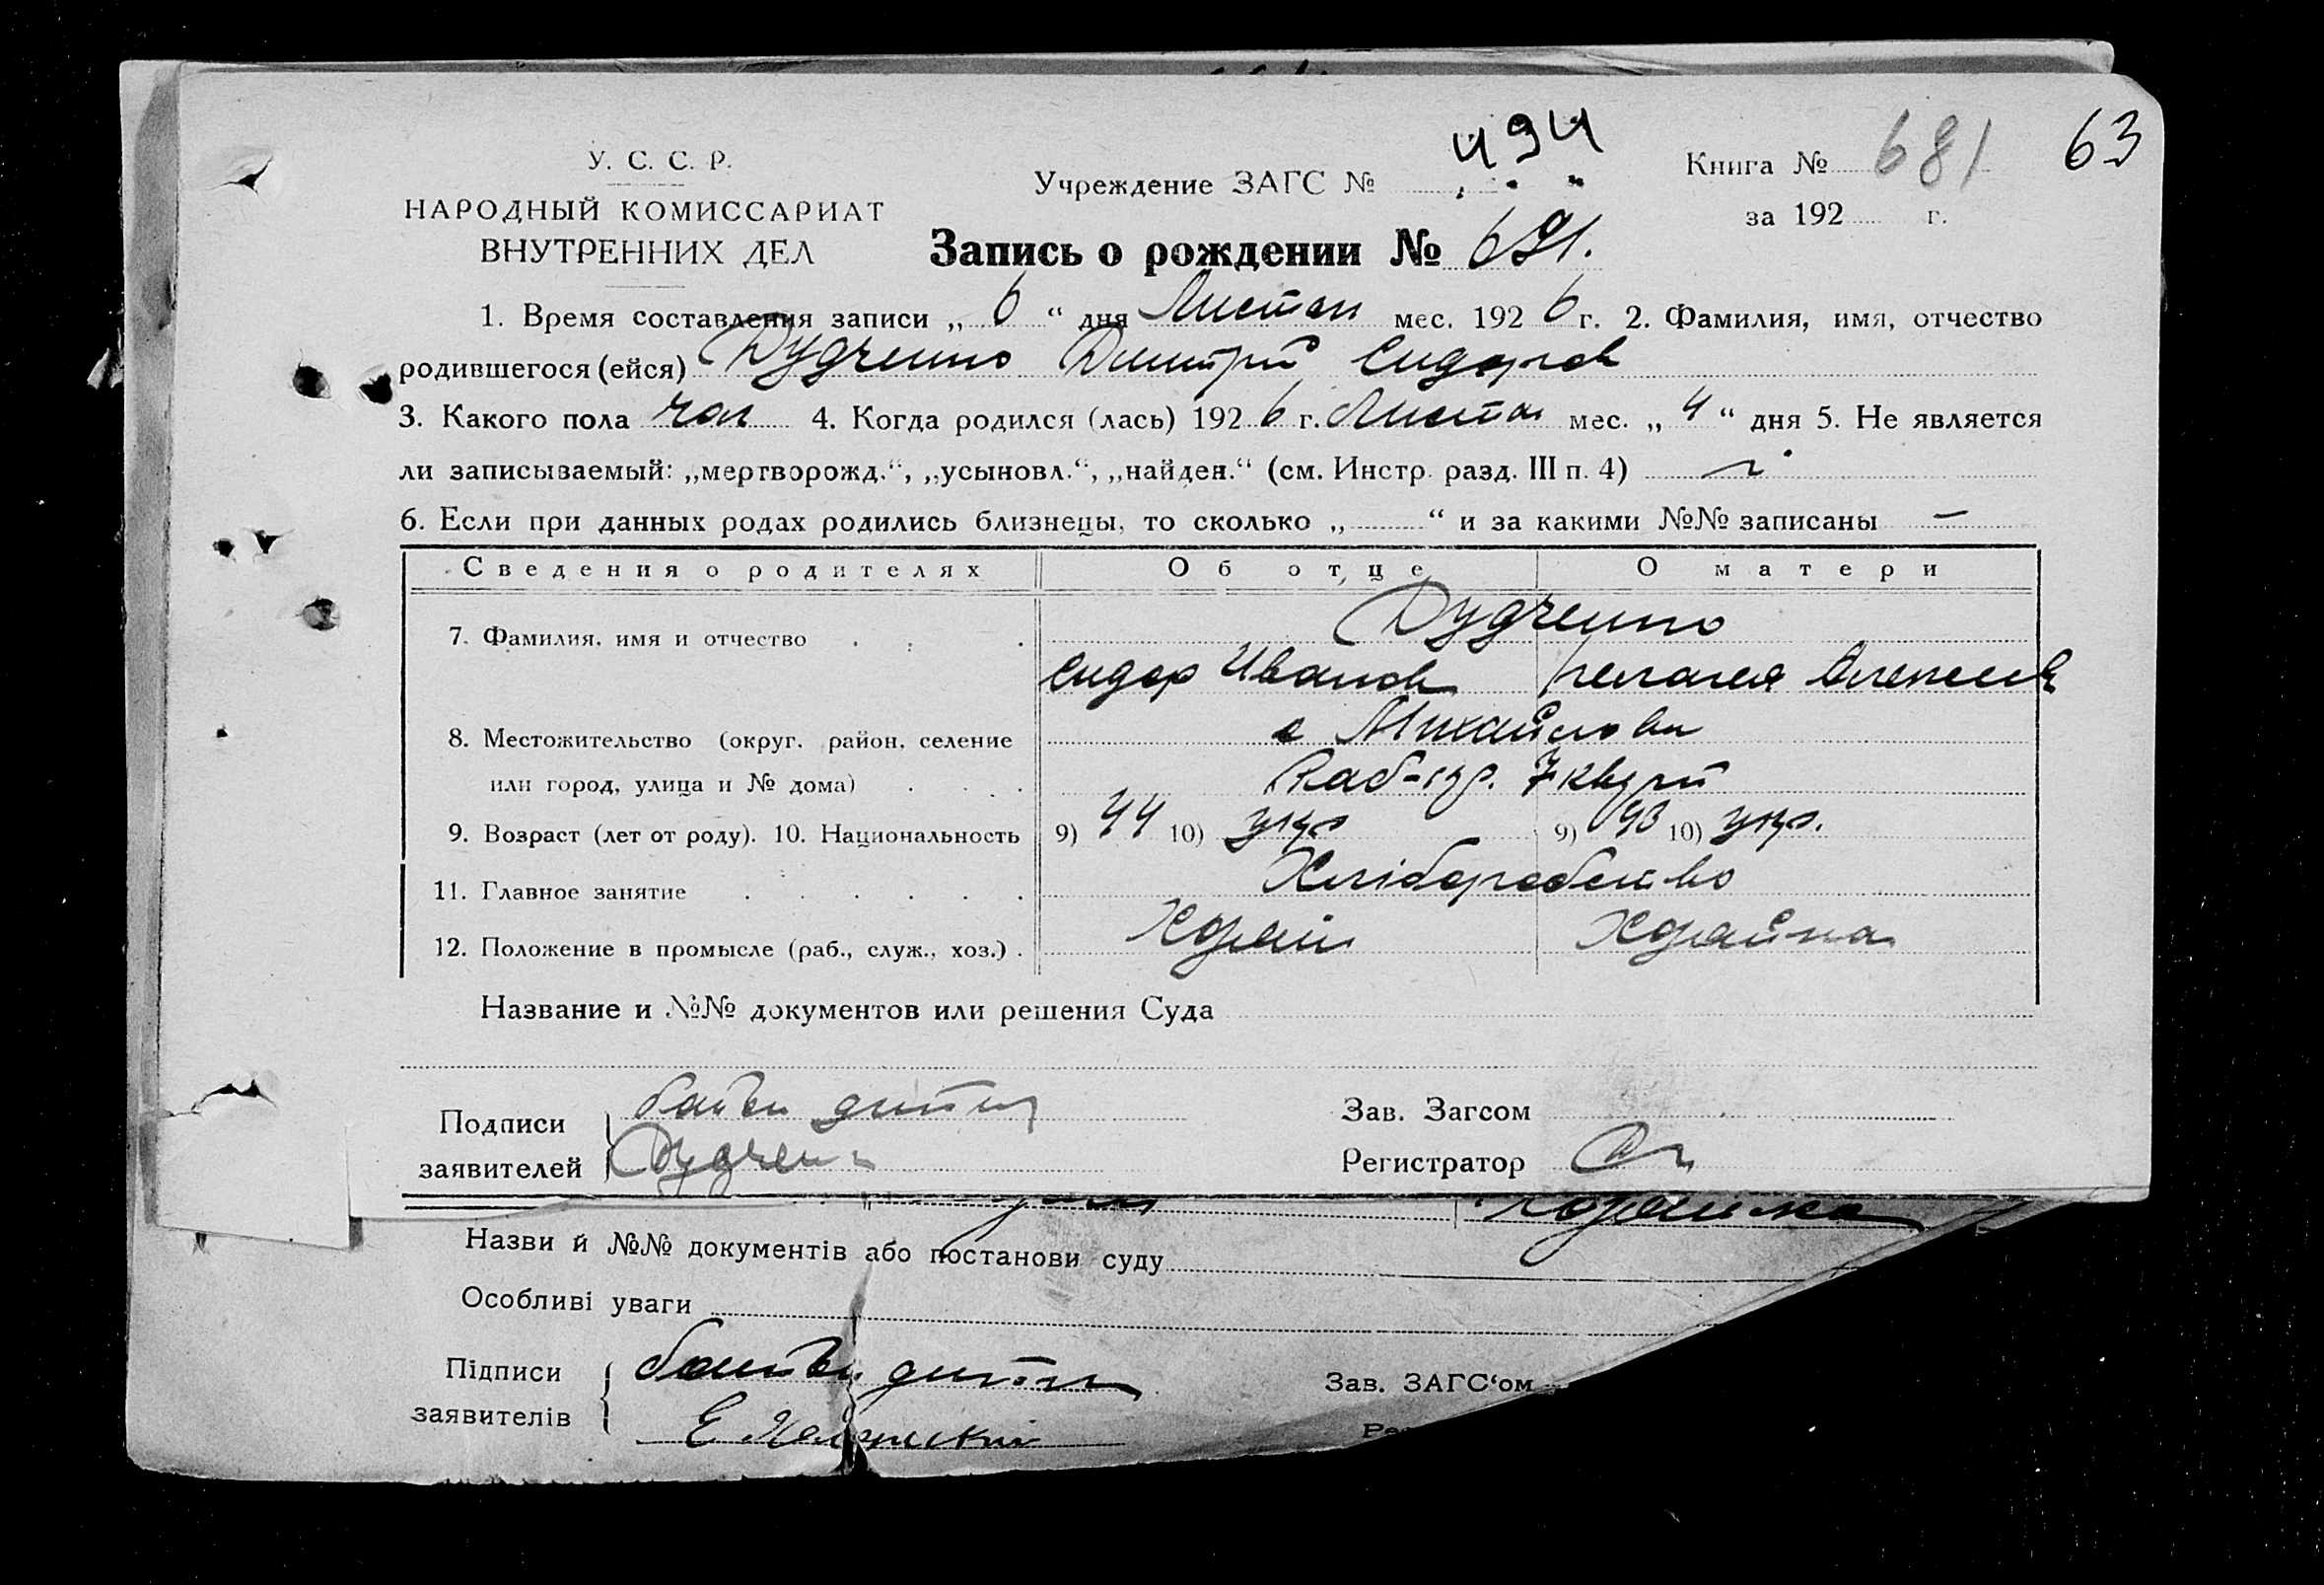 63
У. С. С. Р.
НАРОДНЫЙ КОМИССАРИАТ
ВНУТРЕННИХ ДЕЛ
Учреждение ЗАГС № 494
Книга № 681
за 192 г.
Запись о рождении № 691.
1. Время составления записи „ 6 “ дня Листоп мес. 192 6 г. 2. Фамилия, имя, отчество
родившегося (ейся) Дудченко Дмитрий Сидоров
3. Какого пола чол 4. Когда родился (лась) 192 6 г. Листоп мес. „ 4 “ дня 5. Не является
ли записываемый: „мертворожд.“, „усыновл.“, „найден.“ (см. Инстр. разд. III п. 4)
6. Если при данных родах родились близнецы, то сколько „ “ и за какими №№ записаны —
Сведения о родителях Об отце О матери
7. Фамилия, имя и отчество Дудченко
Сидор Иванов Пелагея Алексеев
8. Местожительство (округ. район, селение с Михайловки
или город, улица и № дома)
9. Возраст (лет от роду). 10. Национальность 9) 44 10) укр 9) 43 10) укр.
11. Главное занятие Хліборобство
12. Положение в промысле (раб., служ., хоз.)
Название и №№ документов или решения Суда
Подписи
заявителей
батьки дитини
Дудченко
Зав. Загсом
Регистратор
Назви й №№ документів або постанови суду
Особливі уваги
Підписи
заявителів
батьки дитини
Зав. ЗАГС‘ом